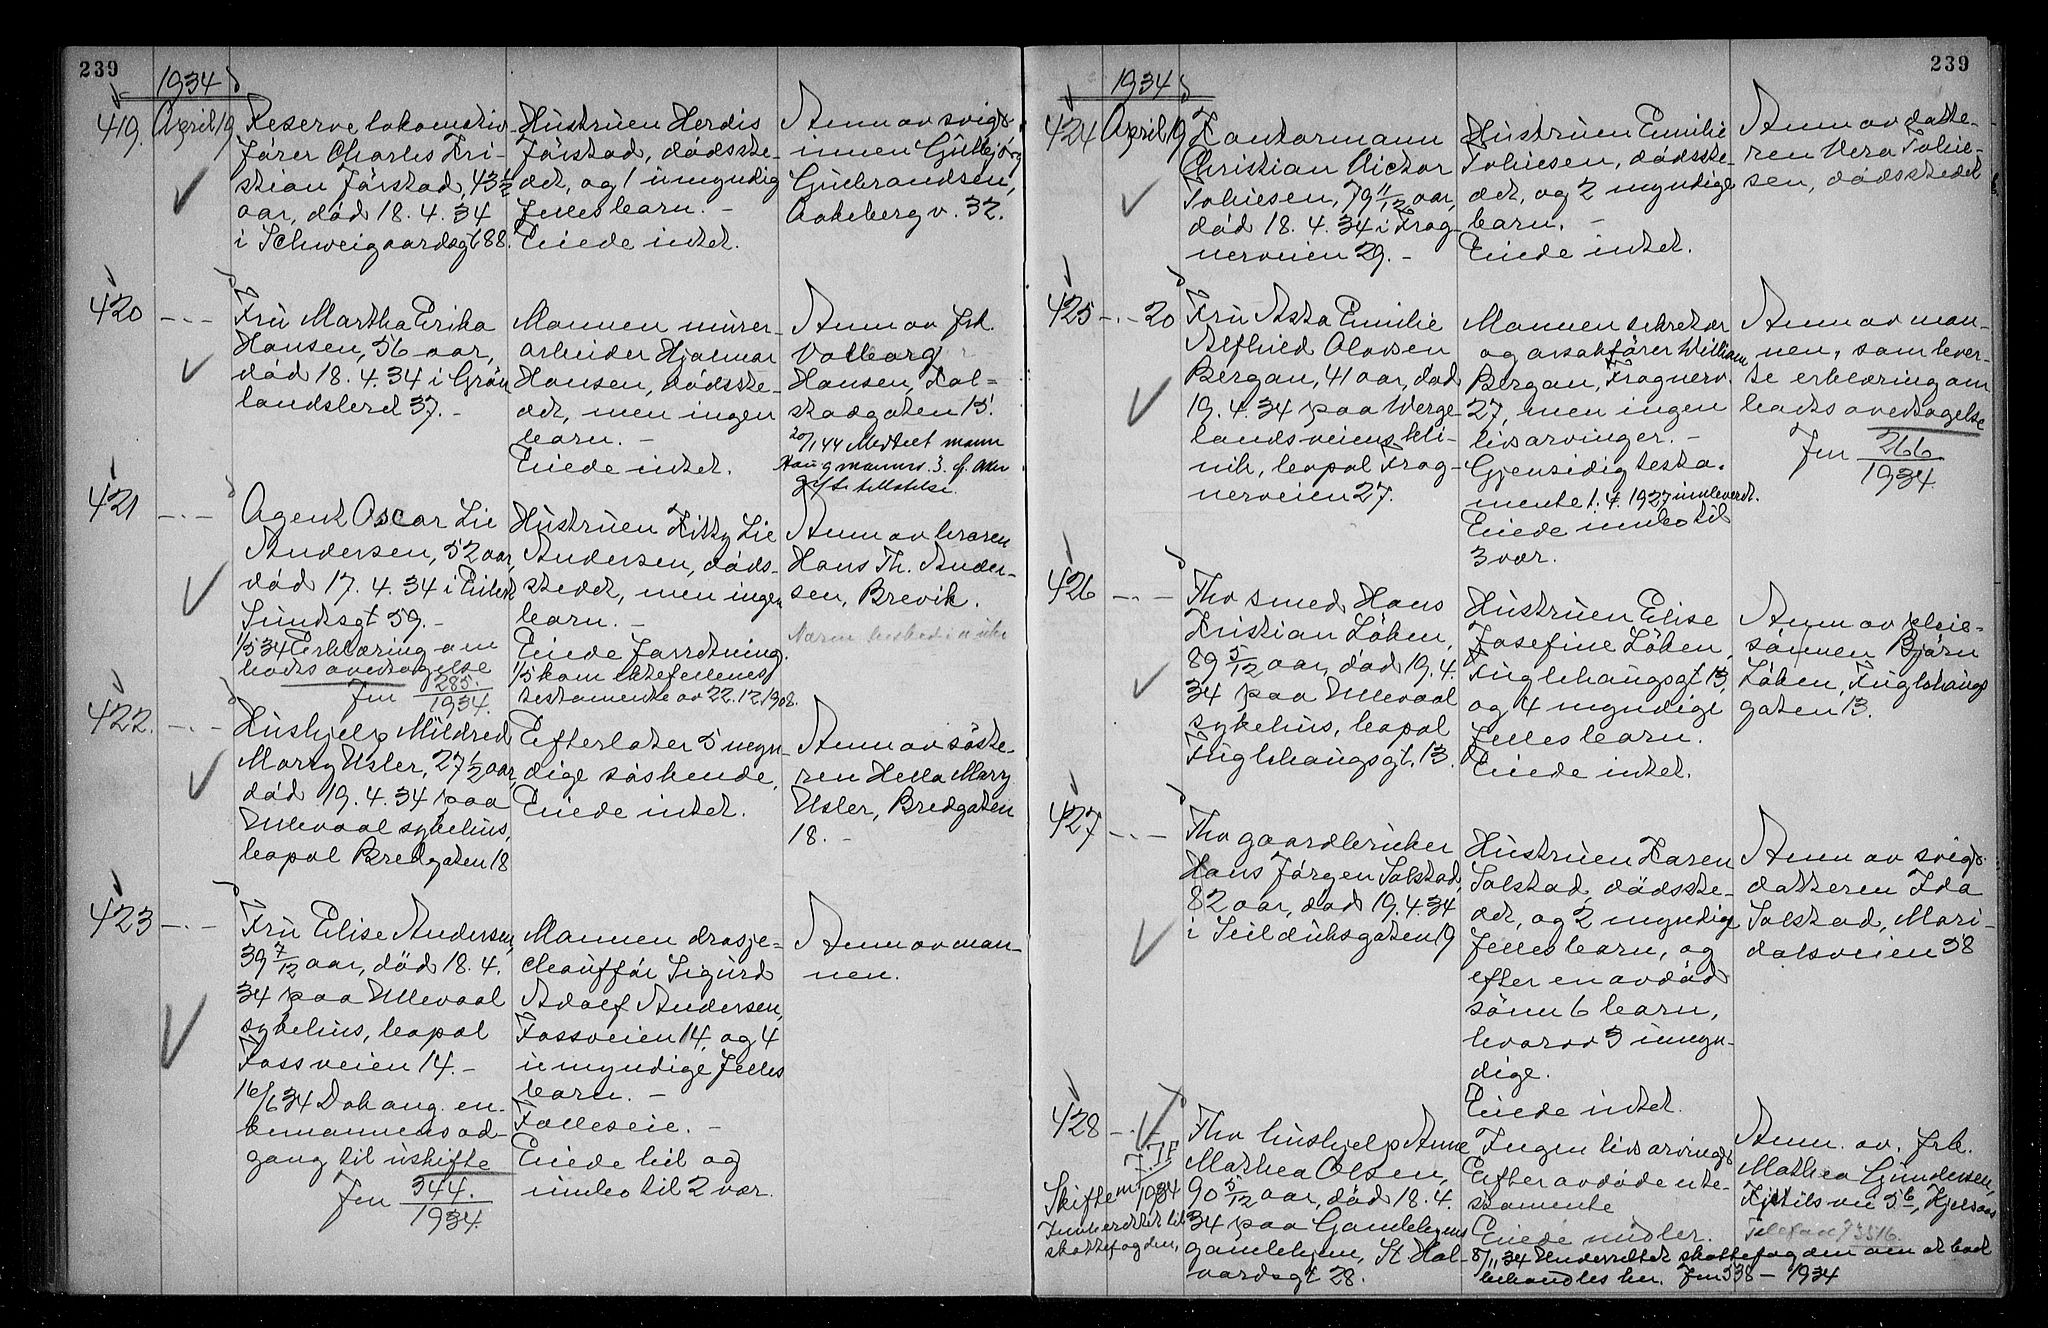 239
1934
419. April 19.
Reserve lokomotiv-
fører Charles Kri-
stian Fårstad, 43 1/2
aar, död 18. 4. 34
i Schweigaardsgt 88.
Hustruen Herdis
Fårstad, dödsste-
det, og 1 umyndig
felles barn. -
Eiede intet.
Anm av svigs
innen
Gulbrandsen,
Aakebergv. 32.
420 -.-
Fru Martha Erika
Hansen, 56 aar,
död 18. 4. 34 i Grön
landsleret 37. -
Mannen murer-
arbeider Hjalmar
Hansen, dödsste-
det, men ingen
barn. -
Eiede intet.
Anm av frk.
Valborg
Hansen, Kal=
stadgaten 13.
20/1 44 Meddelt mann
421 -.-
Agent Oscar Lie
Andersen, 52 aar,
död 17. 4. 34 i Eilert
Sundsgt 59. -
1/5 34 Erklæring om
bodts overtagelse
Jnr 285.
1934.
Hustruen Kitty Lie
Andersen, döds-
stedet, men ingen
barn. -
Eiede forretning.
1/5 kom ektefellenes
testamente av 22.12.1908.
Anm av broren
Hans Th. Ander-
sen, Brevik.
422. -.-
Hushjelp Mildred
Marry Usler, 27 1/2 aar,
död 19. 4. 34 paa
Ullevaal sykehus,
bopæl Bredgaten 18
Efterlater 5 myn-
dige söskende.
Eiede intet.
Anm av söste-
ren Hella Mary
Usler, Bredgaten
18. -
423 -.-
Fru Elise Andersen,
39 7/12 aar, död 18. 4.
34 paa Ullevaal
sykehus, bopæl
Fossveien 14. -
16/6 34 Dok ang. en-
kemannens ad-
gang til uskifte
Jnr 344.
1934.
Mannen drosje=
chauffør Sigurd
Adolf Andersen,
Fossveien 14, og 4
umyndige felles
barn. -
Felleseie. -
Eiede bil og
innbo til 2 vær.
Anm av man-
nen.
239
1934
424 April 19
Kontormann
Christian Victor
Tobiesen, 79 11/12 aar,
död 18. 4. 34 i Frog-
nerveien 29. -
Hustruen Emilie
Tobiesen, dödsste-
det, og 2 myndige
barn. -
Eiede intet.
Anm av datte-
ren Vera Tobie-
sen, dödsstedet
425 -.- 20
Fru Asta Emilie
Alfhild Olavsen
Bergan, 41 aar, död
19. 4. 34 paa Werge-
landsveiens kli-
nik, bopæl Frog-
nerveien 27.
Mannen sekretær
og avsakfører William
Bergan, Frognerv.
27, men ingen
livsarvinger. -
Gjensidig testa-
mente 1. 4. 1927 innlevert.
Eiede innbo til
3 vær.
Anm av man-
nen, som lever-
te erklæring om
bodts overtagelse
Jnr 266
1934
426 -.-
Fhv smed Hans
Kristian Löken,
89 5/12 aar, död 19. 4.
34 paa Ullevaal
sykehus, bopæl
Fuglehaugsgt. 13.
Hustruen Elise
Josefine Löken,
Fuglehaugsgt 13,
og 4 myndige
felles barn.
Eiede intet.
Anm av pleie-
sönnen Björn
Löken, Fuglehaugs
gaten 13.
427 -.-
Fhv gaardbruker
Hans Jörgen Solstad,
82 aar, död 19. 4. 34
i Seilduksgaten 19
Hustruen Karen
Solstad, dödsste-
det, og 2 myndige
felles barn, og
efter en avdöd
sönn 6 barn,
hvorav 3 umyn-
dige.
Eiede intet.
Anm av svigs
datteren Ida
Solstad, Mari-
dalsveien 58
428 -.-
Skifte nr 1934
Innberettet til
skattefogden,
Fhv hushjelp Anne
Mathea Olsen,
90 5/12 aar, död 18. 4.
34 paa Gamlebyens
gamlehjem, St Hal-
vardsgt 28.
Ingen livsarvings
Efter avdöde ute-
stamente
Eiede midler.
8/11 34 Underrettet skattefogden om at boet
behandles her. Jnr 538 - 1934
Anm. av. frk.
Mathea Gundersen,
Kjetils vei 5b, Kjelsaas
Telefon 93516.